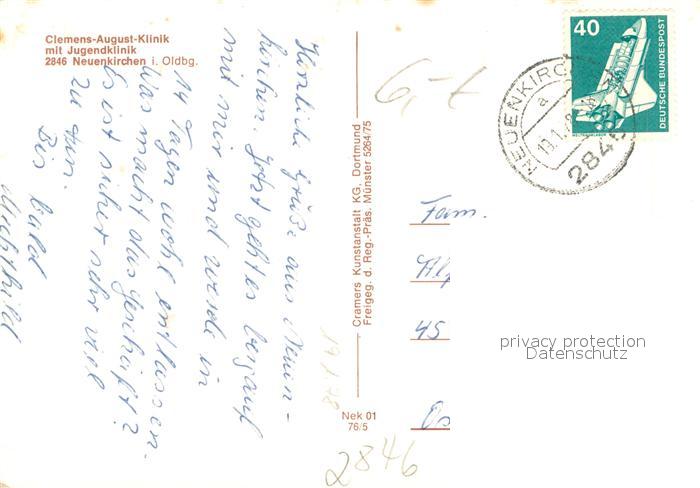 Clemens-August-Klinik
mit Jugendklinik
2846 Neuenkirchen i. Oldbg.
Herzliche Grüße aus Neuen-
kirchen. Jetzt geht es bergauf
mit mir und werde in
14 Tagen wohl entlassen.
Was macht das Geschäft?
Es ist sicher sehr viel
zu tun.
Bis bald
Mechthild
Cramers Kunstanstalt KG. Dortmund
Freigeg. d. Reg.-Präs. Münster 5264/75
Nek 01
76/5
40
DEUTSCHE BUNDESPOST
NEUENKIRCH
a
19.1.
2846
6,-
Fam.
45
Os
privacy protection
Datenschutz
2846